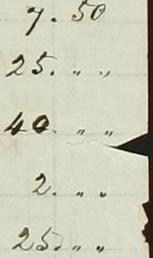 7. 50
25. „ „
40. „ „
2. „ „
25. „ „